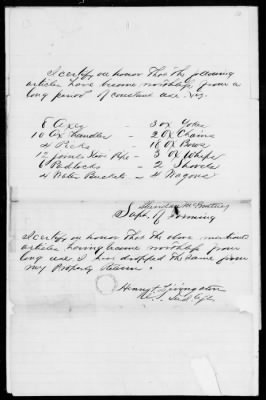 I certify on honor that the following
articles have become worthless from a
long period of constant use. viz.
8 Axes — 3 Ox Yokes
10 Ax Handles — 2 Ox Chains
4 Picks — 18 Ox Bows
12 Stove Pipe — 3 Ox Whips
6 Padlocks — 2 Shovels
4 Water Buckets — 4 Wagons
Sheridan
Supt. of Farming
I certify on honor that the above mentioned
articles having become worthless from
long use I have dropped the same from
my Property return.
Henry Livingston
U. S. Ind. Agt.